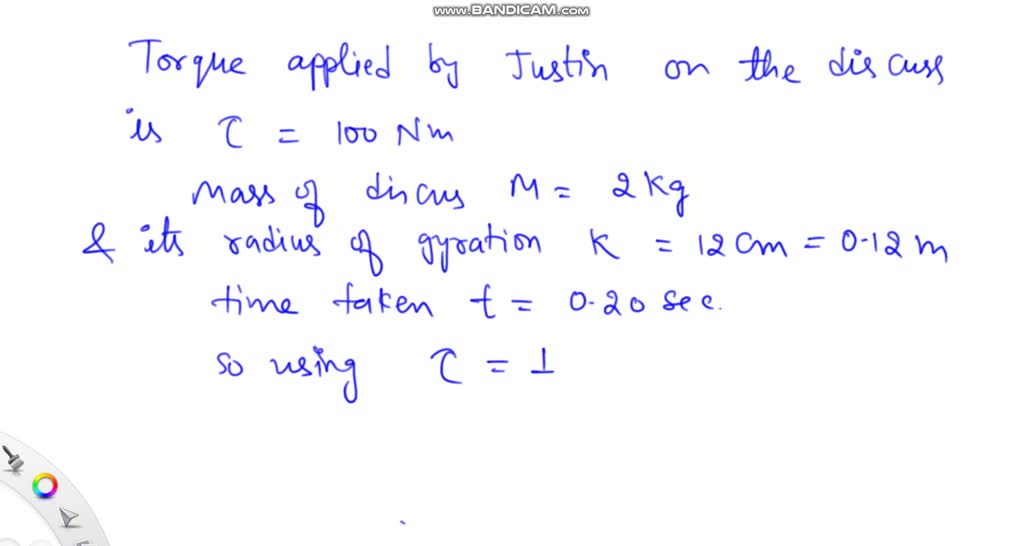 www.BANDICAM.com
Torque applied by Justin on the discuss
is τ = 100 Nm
Mass of discus M = 2 kg
& its radius of gyration K = 12 cm = 0.12 m
time taken t = 0.20 sec.
so using τ = I